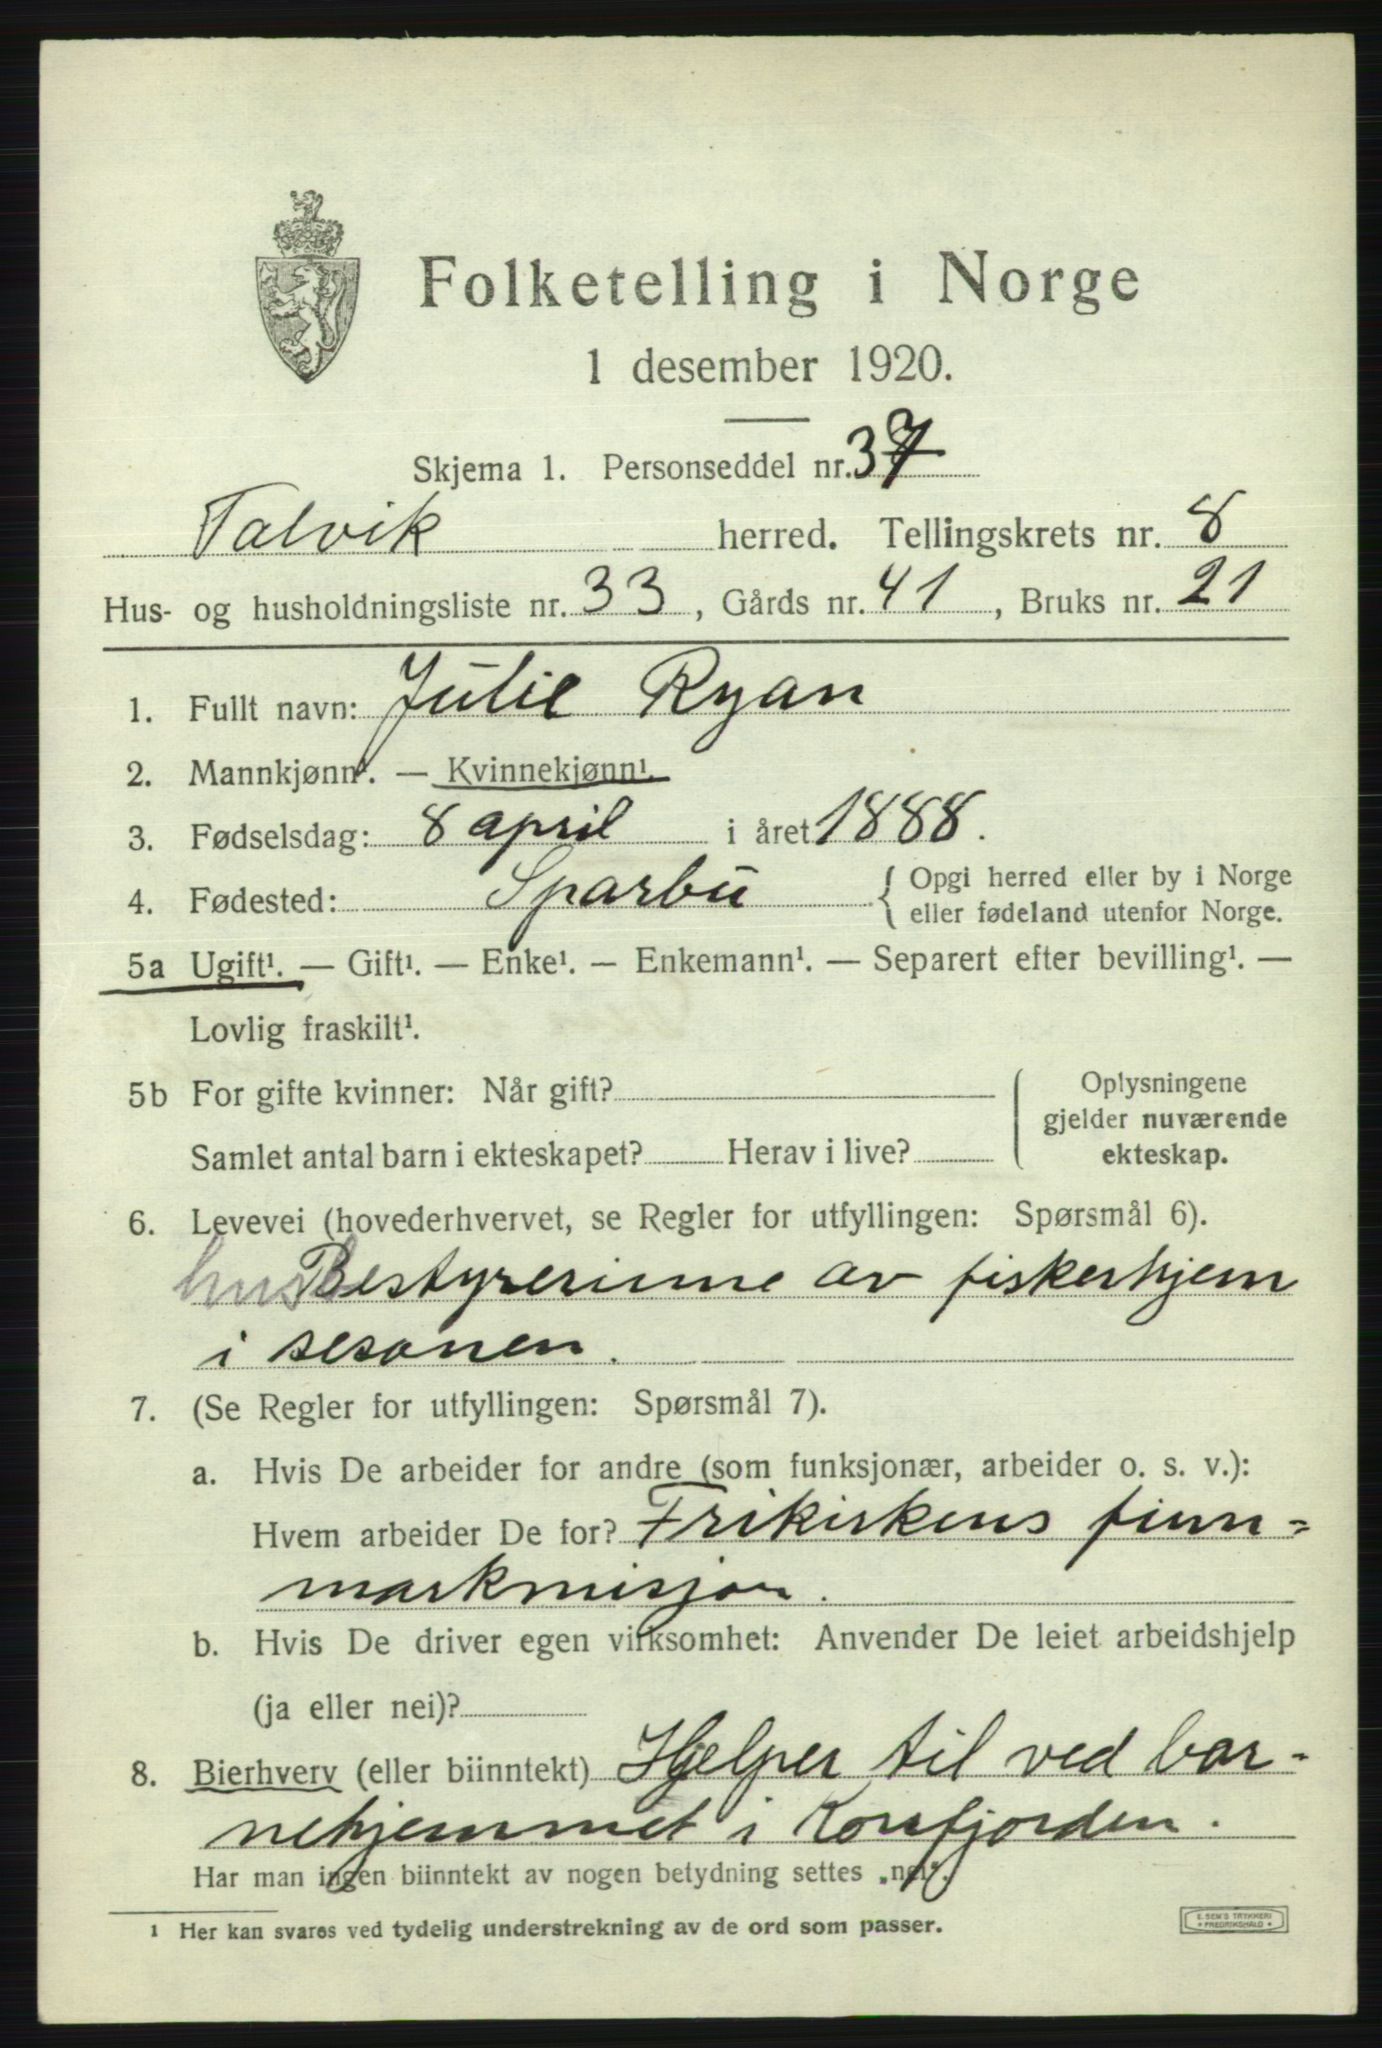 Folketelling i Norge
1 desember 1920.
Skjema 1. Personseddel nr. 37
Talvik herred. Tellingskrets nr. 8
Hus- og husholdningsliste nr. 33, Gårds nr. 41, Bruks nr. 21
1. Fullt navn: Julie Ryan
2. Mannkjønn¹. — Kvinnekjønn¹.
3. Fødselsdag: 8 april i året 1888.
4. Fødested: Sparbu { Opgi herred eller by i Norge
eller fødeland utenfor Norge.
5a Ugift¹. — Gift¹. — Enke¹. — Enkemann¹. — Separert efter bevilling¹. —
Lovlig fraskilt¹.
5b For gifte kvinner: Når gift?
Samlet antal barn i ekteskapet? Herav i live?
Oplysningene
gjelder nuværende
ekteskap.
6. Levevei (hovederhvervet, se Regler for utfyllingen: Spørsmål 6).
Bestyrerinne av fiskerhjem
i sesonen.
7. (Se Regler for utfyllingen: Spørsmål 7).
a. Hvis De arbeider for andre (som funksjonær, arbeider o. s. v.):
Hvem arbeider De for? Frikirkens finn-
markmisjon.
b. Hvis De driver egen virksomhet: Anvender De leiet arbeidshjelp
(ja eller nei)?
8. Bierhverv (eller biinntekt) Hjelper til ved bar-
nehjemmet i Korsfjorden.
Har man ingen biinntekt av nogen betydning settes „nei".
1 Her kan svares ved tydelig understrekning av de ord som passer.
E. SEM'S TRYKKERI
FREDRIKSHALD